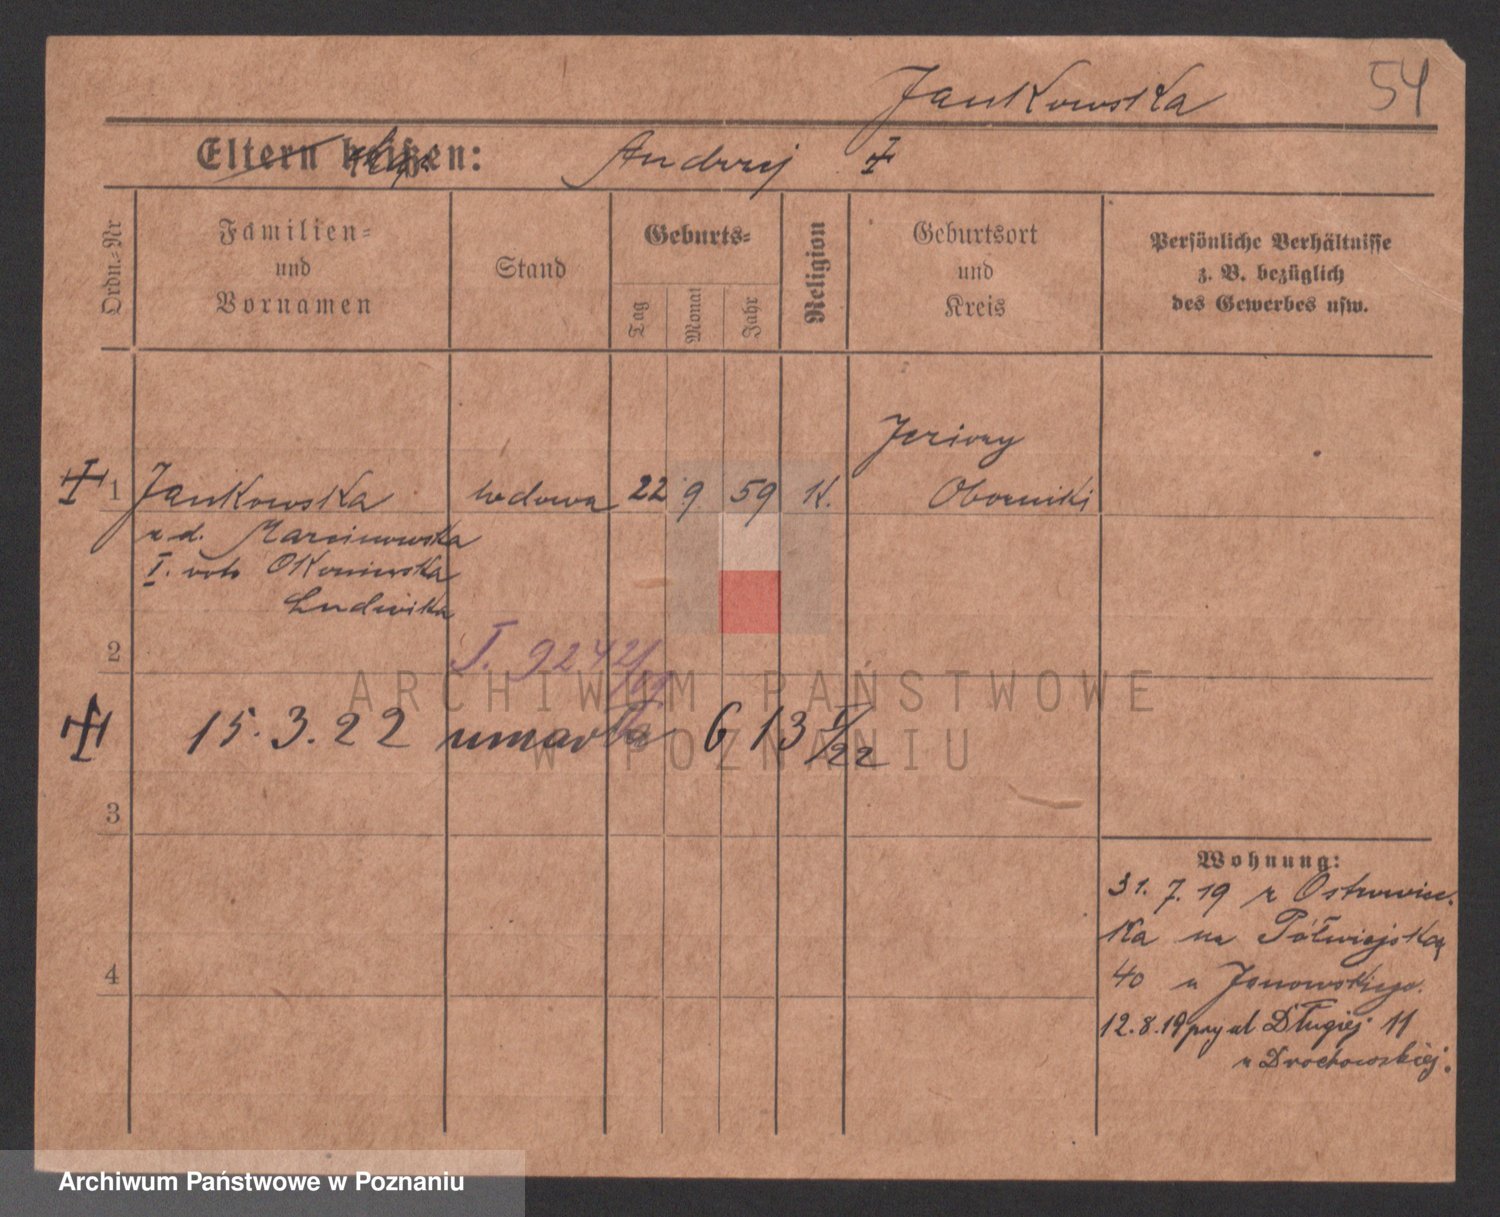 54
Jankowska
Eltern heißen: Andrzej
Ordn.-Nr
Familien-
und
Vornamen
Stand
Geburts-
Tag
Monat
Jahr
Religion
Geburtsort
und
Kreis
Persönliche Verhältnisse
z. B. bezüglich
des Gewerbes usw.
Jeziory
1 Jankowska wdowa 22 9 59 K. Oborniki
z d. Marcinowska
I. voto Okoniewska
Ludwika
2
I. 9242/
15. 3. 22 umarła 6 13 /22
ARCHIWUM PAŃSTWOWE
W POZNANIU
3
4
Wohnung:
31. 7. 19 z Ostrowiec.
ka na Półwiejską
40 u Janowskiego.
12.8.19 przy ul Długiej 11
u Drochowskiej.
Archiwum Państwowe w Poznaniu